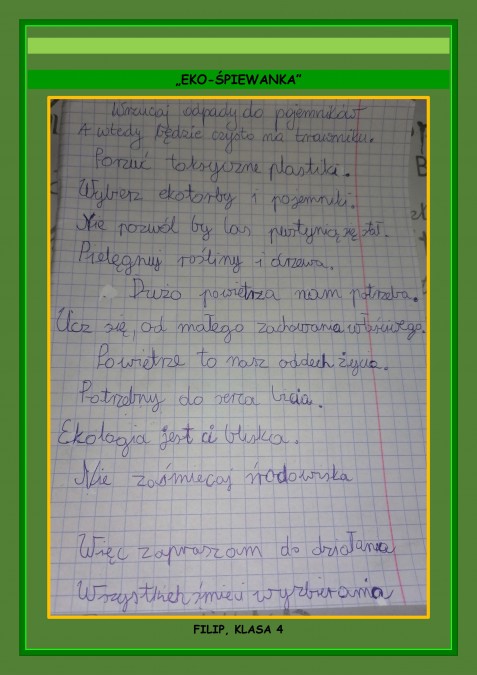 „EKO-ŚPIEWANKA"
Wrzucaj odpady do pojemników
A wtedy będzie czysto na trawniku.
Porzuć toksyczne plastiki.
Wybierz ekotorby i pojemniki.
Nie pozwól by las pustynią się stał.
Pielęgnuj rośliny i drzewa.
Dużo powietrza nam potrzeba.
Ucz się, od małego zachowania właściwego.
Powietrze to nasz oddech życia.
Potrzebny do serca bicia.
Ekologia jest ci bliska.
Nie zaśmiecaj środowiska
Więc zapraszam do działania
Wszystkich śmieci wyzbierania
FILIP, KLASA 4